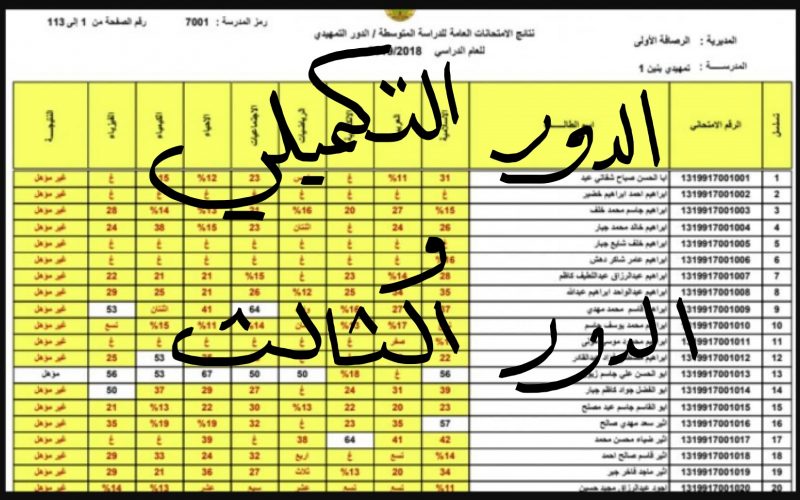 نتائج الامتحانات العامة للدراسة المتوسطة / الدور التمهيدي
للعام الدراسي 2018/
المديرية : الرصافة الأولى
المدرسة : تمهيدي بنين 1
رمز المدرسة : 7001
رقم الصفحة من 1 إلى 113
الدور التكميلي
و
الدور الثالث
تسلسل الرقم الامتحاني الاسلامية الرياضيات الاجتماعيات الاحياء الكيمياء الفيزياء النتيجة
1 1319917001001 ابا الحسن صباح شغاتي عبد 31 غ %11 23 %12 غ غير مؤهل
2 1319917001002 ابراهيم احمد ابراهيم خضير غ غ غ غ غ غ غ غ غير مؤهل
3 1319917001003 ابراهيم جاسم محمد خلف %15 27 20 %16 %14 28 غير مؤهل
4 1319917001004 ابراهيم خالد محمد جبار 26 24 غ اثنتان 23 %15 38 24 غير مؤهل
5 1319917001005 ابراهيم خلف شايع جبار غ غ غ غ غ غ غ غير مؤهل
6 1319917001006 ابراهيم عامر شاكر دهش %16 غ غ غ غ غ غ غير مؤهل
7 1319917001007 ابراهيم عبدالرزاق عبداللطيف كاظم 28 %14 23 غ %15 21 21 22 غير مؤهل
8 1319917001008 ابراهيم عبدالواحد ابراهيم عبدالله 35 34 25 %12 26 21 25 29 غير مؤهل
9 1319917001009 ابراهيم قاسم محمد مهدي 37 27 %16 64 41 اثنتان 53 غير مؤهل
10 1319917001010 ابراهيم محمد يوسف جاسم %17 %14 %11 %15 تسع غير مؤهل
11 1319917001011 صفر غ غ غ غ غير مؤهل
12 1319917001012 22 53 25 غير مؤهل
13 1319917001013 ابو الحسن علي جاسم 56 غ %18 50 50 67 53 56 مؤهل
14 1319917001014 ابو الفضل جواد كاظم جبار 39 31 24 غ 27 29 37 50 غير مؤهل
15 1319917001015 ابو القاسم جاسم عبد مصلح 23 20 22 %13 30 22 %13 21 غير مؤهل
16 1319917001016 اثير سعد مهدي صالح 57 35 23 غ 32 %19 %19 35 غير مؤهل
17 1319917001017 اثير ضياء محسن محمد 42 41 64 38 غ 39 غ غ غير مؤهل
18 1319917001018 اثير قاسم صالح احمد %14 تسع غ اربع 32 24 33 29 غير مؤهل
19 1319917001019 اثير ماجد فاخر جبر 34 20 %13 ثلاث 27 36 21 29 غير مؤهل
20 1319917001020 اجود عبدالرزاق مجيد حسين %11 تسع تسع عشر سبع عشر %13 %14 غير مؤهل